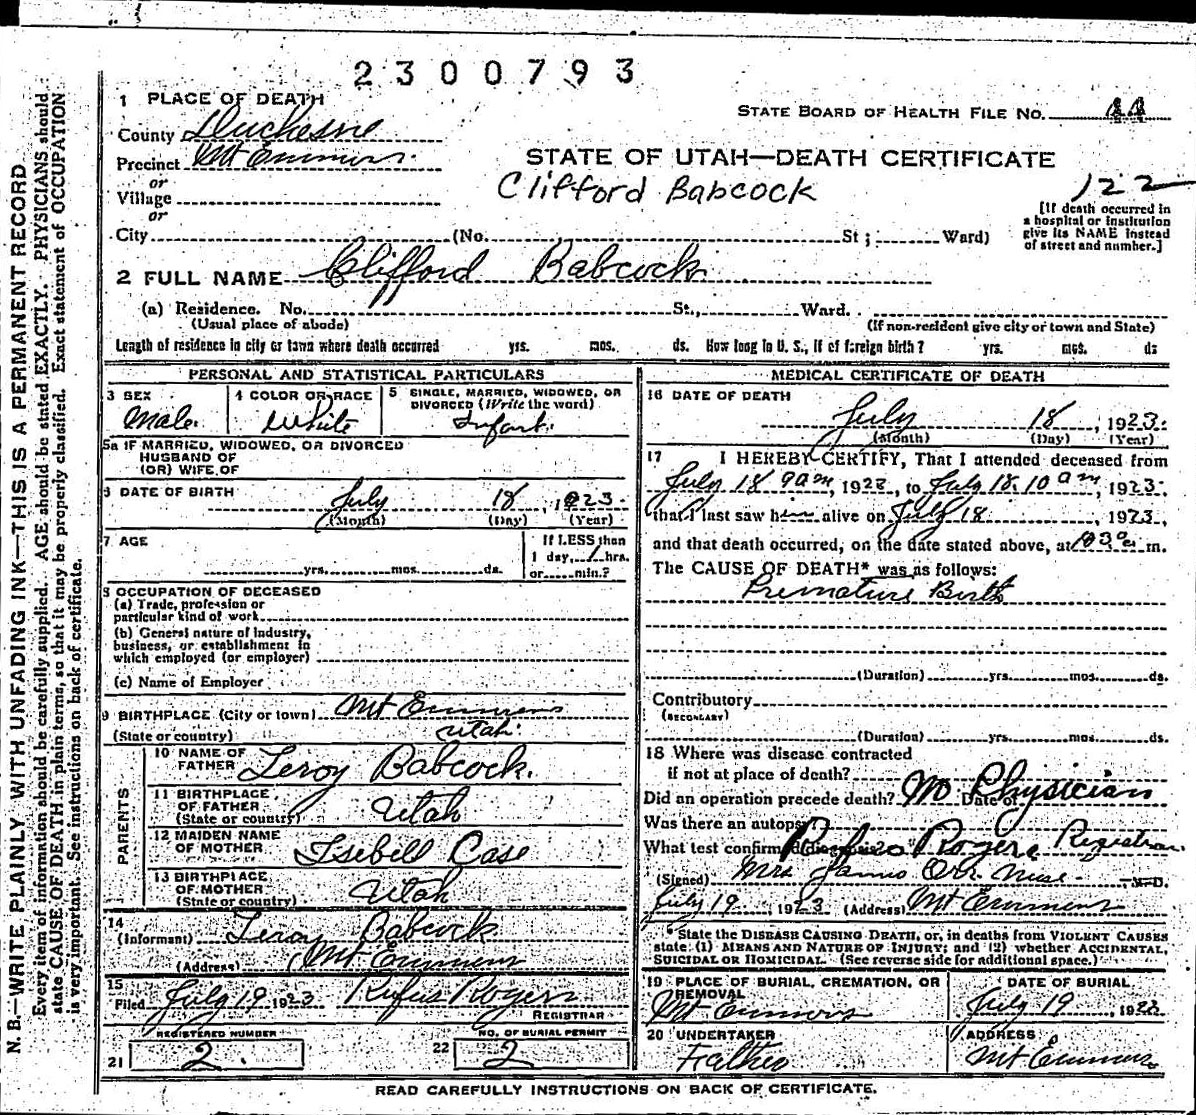 2300793
1 PLACE OF DEATH
STATE BOARD OF HEALTH FILE No. 44
County Duchesne
Precinct Mt Emmons.
or
Village
or
STATE OF UTAH—DEATH CERTIFICATE
Clifford Babcock
122
[If death occurred in
a hospital or institution
give its NAME instead
of street and number.]
City (No. St ; Ward)
2 FULL NAME Clifford Babcock.
(a) Residence. No. St., Ward.
(Usual place of abode) (If non-resident give city or town and State)
Length of residence in city or town where death occurred yrs. mos. ds. How long in U. S., if of foreign birth? yrs. mos. ds
PERSONAL AND STATISTICAL PARTICULARS
3 SEX
Male.
4 COLOR OR RACE
White
5 SINGLE, MARRIED, WIDOWED, OR
DIVORCED (Write the word)
Infant.
5a IF MARRIED, WIDOWED, OR DIVORCED
HUSBAND OF
(OR) WIFE OF
6 DATE OF BIRTH
July 18, 1923.
(Month) (Day) (Year)
7 AGE
yrs. mos. ds.
If LESS than
1 day, 1 hrs.
or min.?
8 OCCUPATION OF DECEASED
(a) Trade, profession or
particular kind of work
(b) General nature of industry,
business, or establishment in
which employed (or employer)
(c) Name of Employer
9 BIRTHPLACE (City or town) Mt Emmons
(State or country) Utah.
PARENTS
10 NAME OF
FATHER Leroy Babcock.
11 BIRTHPLACE
OF FATHER
(State or country) Utah
12 MAIDEN NAME
OF MOTHER Isebell Case
13 BIRTHPLACE
OF MOTHER
(State or country) Utah
14
(Informant) Leroy Babcock
(Address) Mt Emmons
15
Filed July 19, 1923 Rufus Rogers
REGISTRAR
REGISTERED NUMBER
21 2.
NO. OF BURIAL PERMIT
22 2
MEDICAL CERTIFICATE OF DEATH
16 DATE OF DEATH
July 18, 1923.
(Month) (Day) (Year)
17 I HEREBY CERTIFY, That I attended deceased from
July 18 9am, 1923, to July 18. 10 am, 1923,
that I last saw him alive on July 18, 1923,
and that death occurred, on the date stated above, at m.
The CAUSE OF DEATH* was as follows:
Premature Birth
(Duration) yrs. mos. ds.
Contributory
(SECONDARY)
(Duration) yrs. mos. ds.
18 Where was disease contracted
if not at place of death?
Did an operation precede death? No Date of Physician
Was there an autopsy
What test confirmed diagnosis? Rufus Rogers Registrar.
(Signed) Mrs James Orr Nurse M.D.
July 19, 1923 (Address) Mt Emmons
*State the DISEASE CAUSING DEATH, or, in deaths from VIOLENT CAUSES
state (1) MEANS AND NATURE OF INJURY; and (2) whether ACCIDENTAL,
SUICIDAL OR HOMICIDAL. (See reverse side for additional space.)
19 PLACE OF BURIAL, CREMATION, OR
REMOVAL
Mt Emmons
DATE OF BURIAL
July 19, 1923
20 UNDERTAKER
Father
ADDRESS
Mt Emmons
READ CAREFULLY INSTRUCTIONS ON BACK OF CERTIFICATE.
N. B.—WRITE PLAINLY WITH UNFADING INK—THIS IS A PERMANENT RECORD
Every item of information should be carefully supplied. AGE should be stated EXACTLY. PHYSICIANS should
state CAUSE OF DEATH in plain terms, so that it may be properly classified. Exact statement of OCCUPATION
is very important. See instructions on back of certificate.